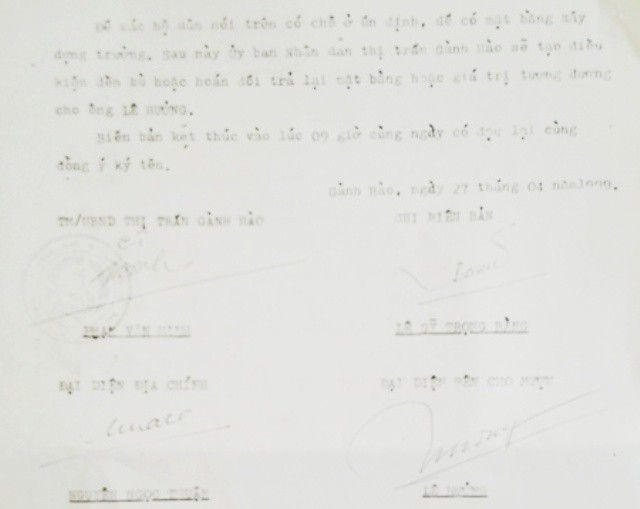 Để các hộ dân nói trên có chỗ ở ổn định, để có mặt bằng xây
dựng trường. Sau này Ủy ban Nhân dân thị trấn Gành Hào sẽ tạo điều
kiện đền bù hoặc hoán đổi trả lại mặt bằng hoặc giá trị tương đương
cho ông LÊ HƯỞNG.
Biên bản kết thúc vào lúc 09 giờ cùng ngày có đọc lại cùng
đồng ý ký tên.
Gành Hào, ngày 27 tháng 04
TM/UBND THỊ TRẤN GÀNH HÀO
GHI BIÊN BẢN
PHAN VĂN MINH
LÊ SỸ TRỌNG BẰNG
ĐẠI DIỆN ĐỊA CHÍNH
ĐẠI DIỆN BÊN CHO MƯỢN
NGUYỄN NGỌC THUẬN
LÊ HƯỞNG